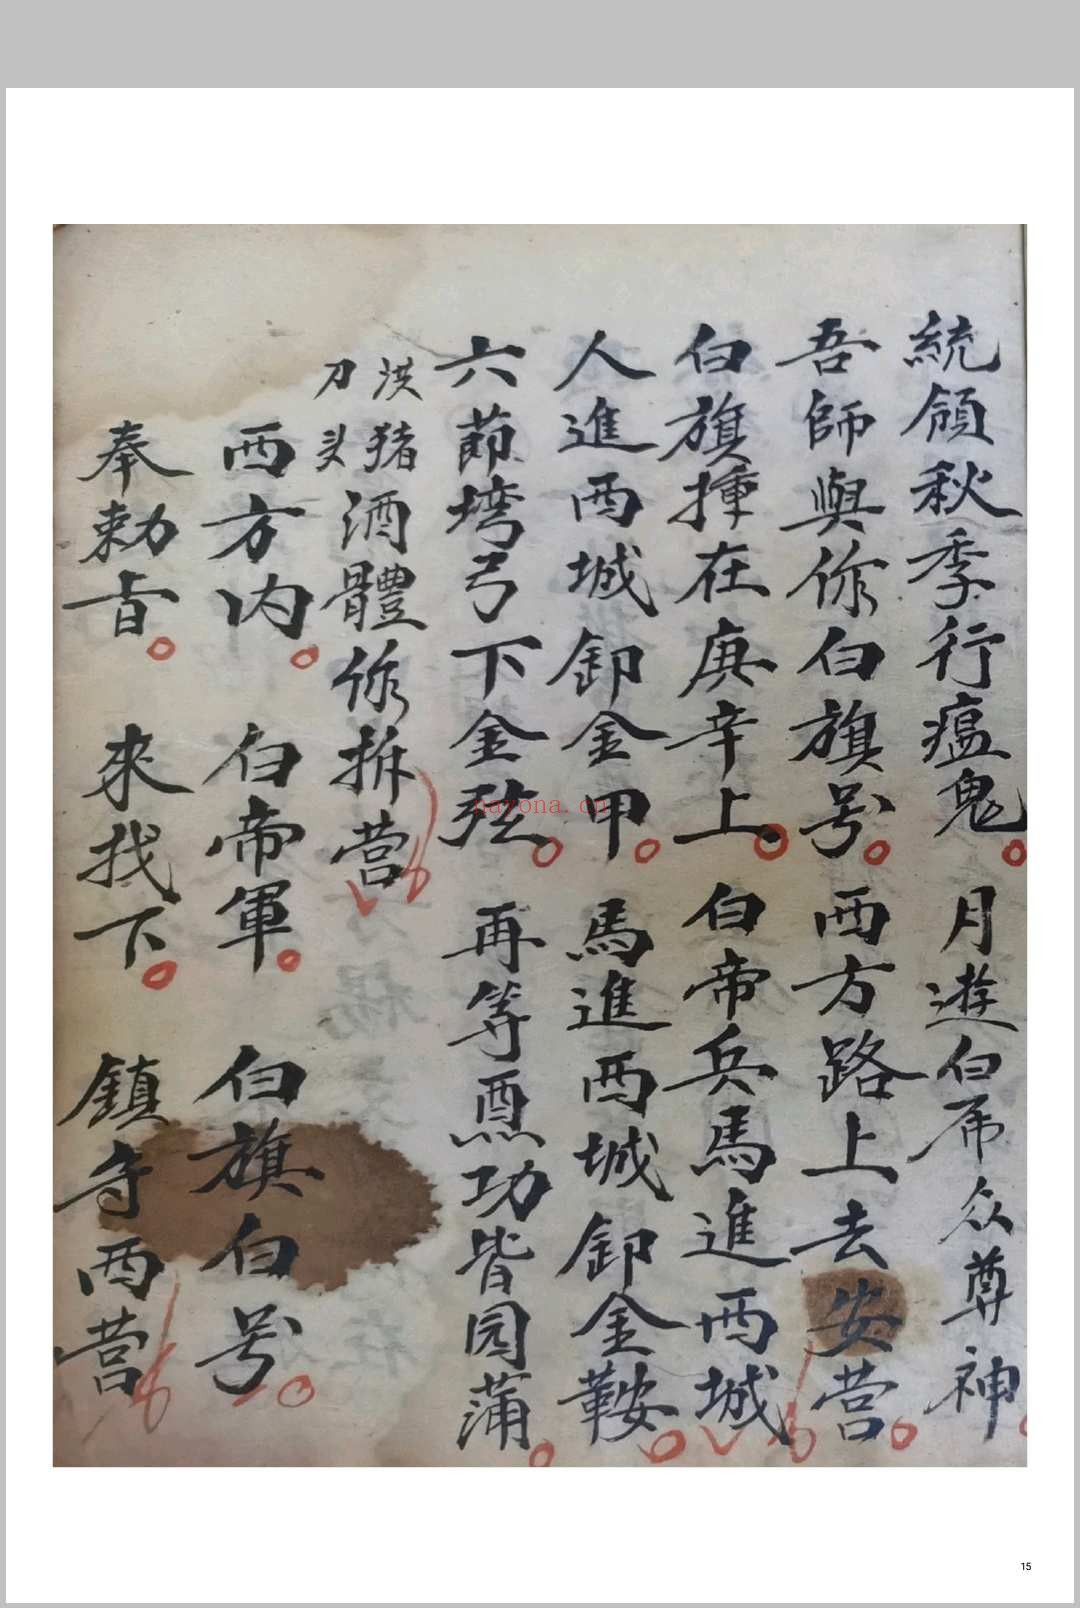 統領秋季行瘟鬼。月遊白帝众尊神。
吾師與你白旗号。西方路上去安营。
白旗揮在庚辛上。白帝兵馬進西城
人進西城卸金甲。馬進西城卸金鞍。
六莭塆弓下金弦。再等功皆园蒲。
洪猪
刀头
酒體你拆营
西方内。白帝軍。白旗白号。
奉勅旨。來找下。鎮守西营
nayona.cn
15